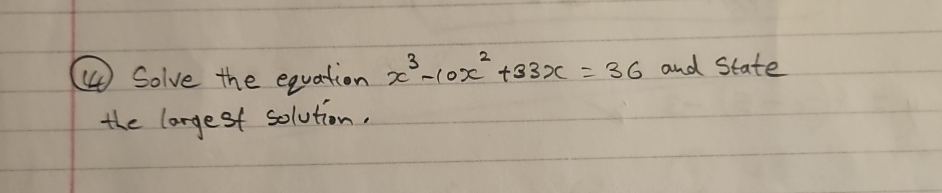 (14) Solve the equation x³-10x²+33x = 36 and State
the largest solution.